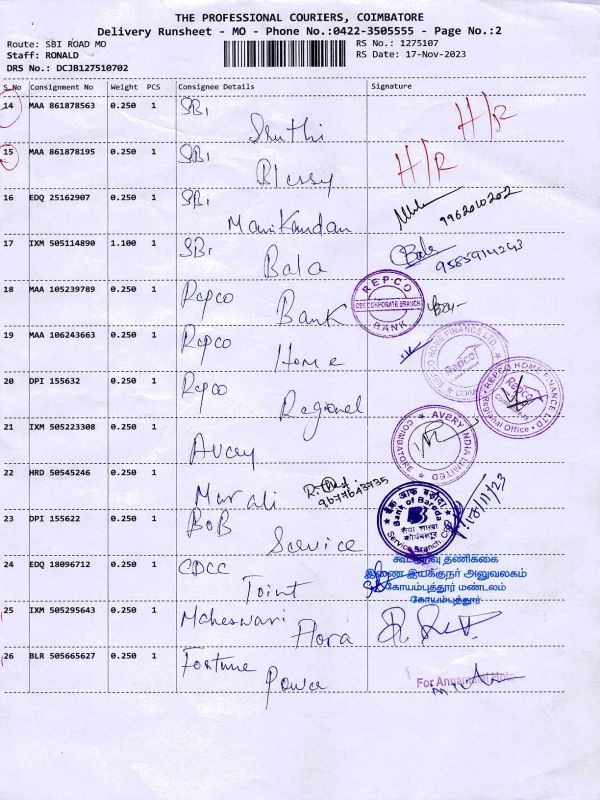 THE PROFESSIONAL COURIERS, COIMBATORE
Delivery Runsheet - MO - Phone No.:0422-3505555 - Page No.:2
Route: SBI ROAD MO
RS No.: 1275107
Staff: RONALD
RS Date: 17-Nov-2023
DRS No.: DCJB127510702
S.No Consignment No Weight PCS Consignee Details Signature
14 MAA 861878563 0.250 1 SBI
Senthi
H/R
15 MAA 861878195 0.250 1 SBI
Blessy
H/R
16 EDQ 25162907 0.250 1 SBI
Manikandan
9962010202
17 IXM 505114890 1.100 1 SBI
Bala
Bala
9585914243
18 MAA 105239789 0.250 1 Repco
Bank
REPCO BANK
CBE CORPORATE BRANCH
19 MAA 106243663 0.250 1 Repco
Home
REPCO HOME FINANCE LTD.
Repco
20 DPI 155632 0.250 1 Repco
Regional
REPCO HOME FINANCE LTD
Repco
Regional Office
21 IXM 505223308 0.250 1 Avery
AVERY INDIA LIMITED
COIMBATORE
22 HRD 50545246 0.250 1 Murali
23 DPI 155622 0.250 1 BOB
Service
बैंक ऑफ़ बड़ौदा
Bank of Baroda
सेवा शाखा
कोयम्बतूर
Service Branch
17/11/23
24 EDQ 18096712 0.250 1 CDCC
Joint
கூட்டுறவு தணிக்கை
இணை இயக்குநர் அலுவலகம்
கோயம்புத்தூர் மண்டலம்
கோயம்புத்தூர்
25 IXM 505295643 0.250 1 Maheswari
Flora
26 BLR 505665627 0.250 1 Fortune
Power
For